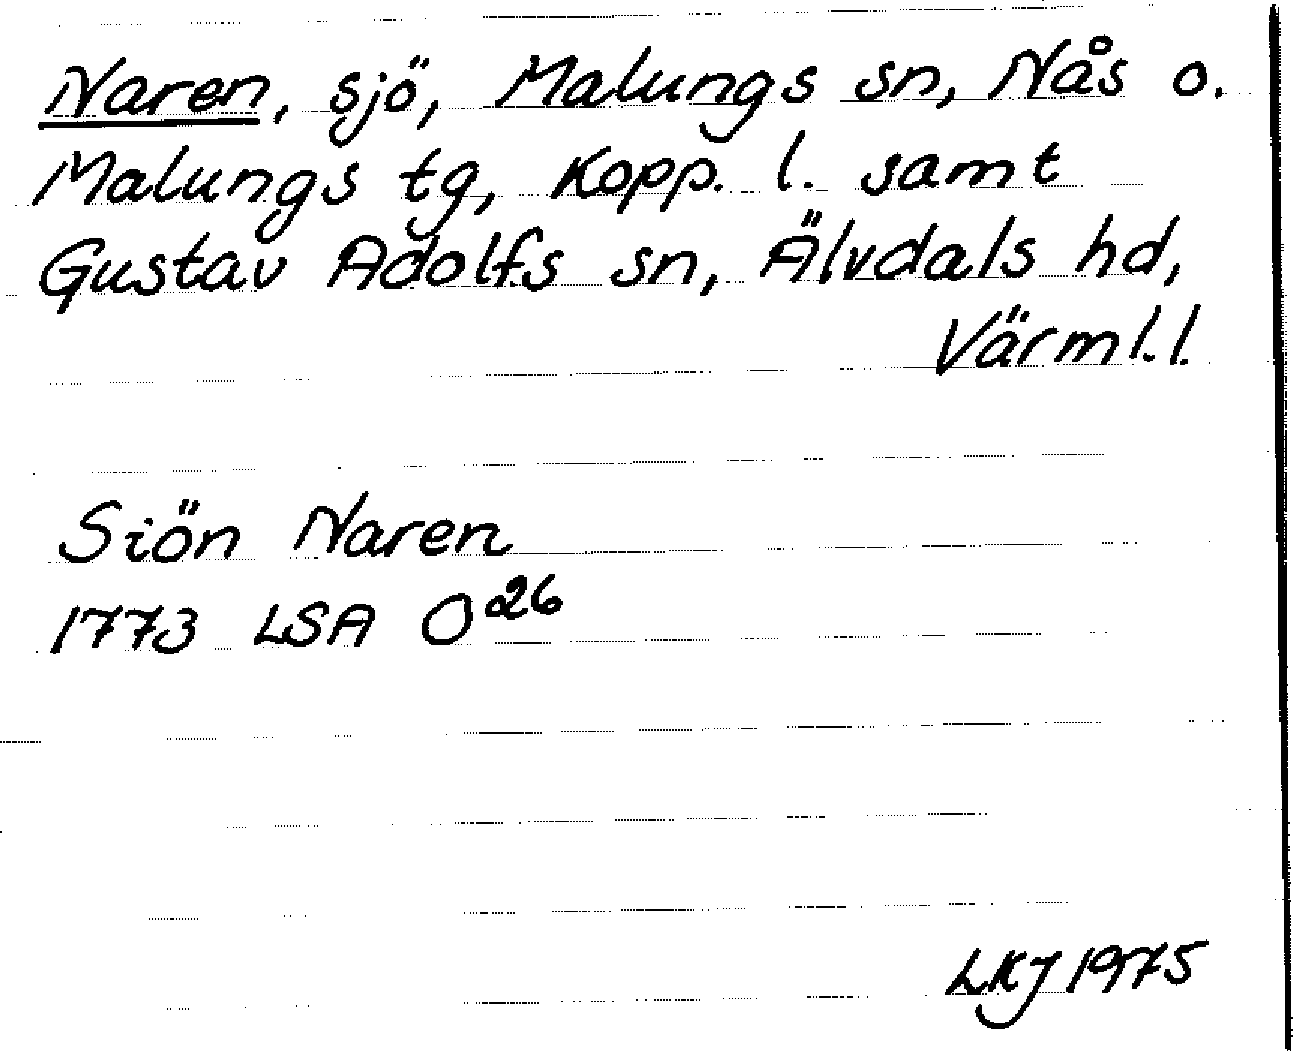 Naren, sjö, Malungs sn, Nås o.
Malungs tg, Kopp. l. samt
Gustav Adolfs sn, Älvdals hd,
Värml. l.
Siön Naren
1773 LSA O26
LKJ 1975